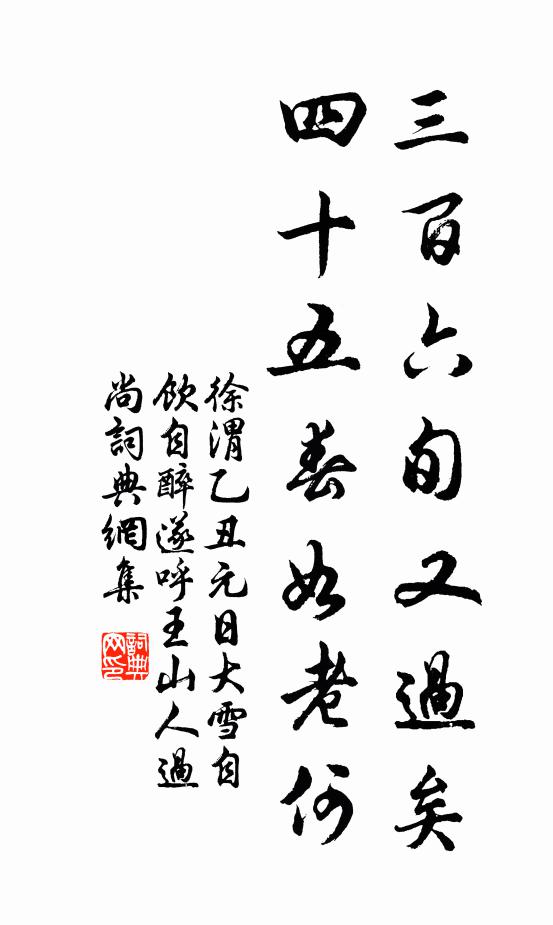 三百六旬又過矣
四十五春如老何
徐渭乙丑元日大雪自
飲自醉遂呼王山人過
尚詞典網集
詞典
网印